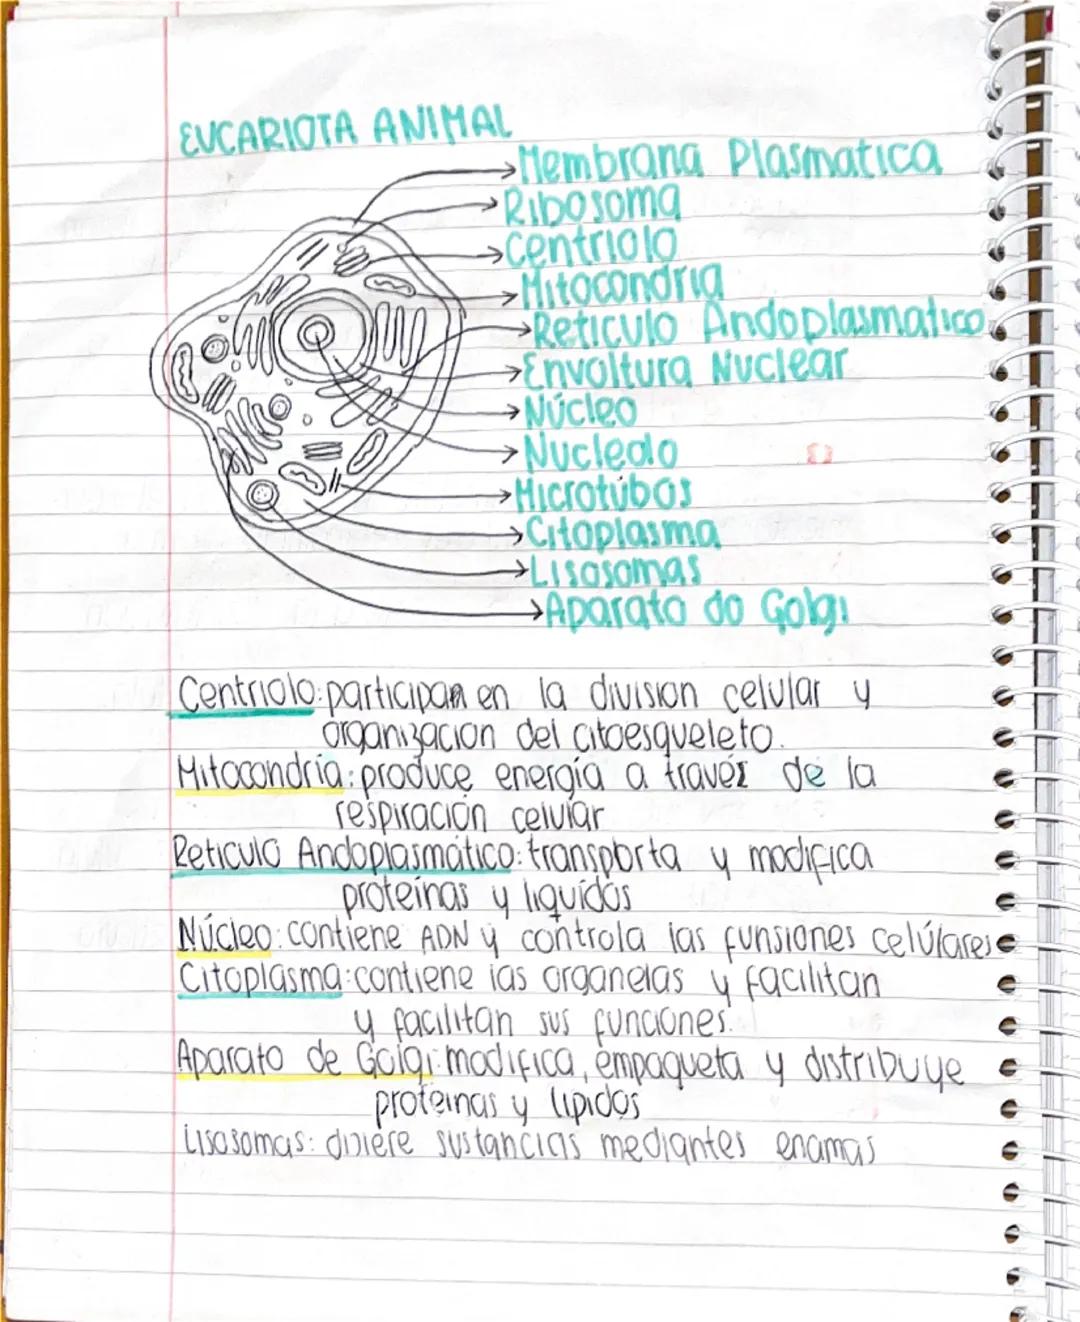 EUCARIOTA ANIMAL
Membrana Plasmatica
Ribosoma
Centriolo
Mitocondria
Reticulo Andoplasmatico
Envoltura Nuclear
Núcleo
Nucleolo
Microtúbos
Citoplasma
Lisosomas
Aparato do Golgi
Centriolo: participan en la division celular y
organizacion del citoesqueleto.
Mitocondria: produce energía a través de la
respiración celular
Reticulo Andoplasmático: transporta y modifica
proteínas y liquidos
Núcleo: contiene ADN y controla las funsiones celúlares
Citoplasma: contiene las organelas y facilitan
y facilitan sus funciones.
Aparato de Golgi: modifica, empaqueta y distribuye
proteinas y lipidos
Lisosomas: diJiere sustancias mediantes enamas